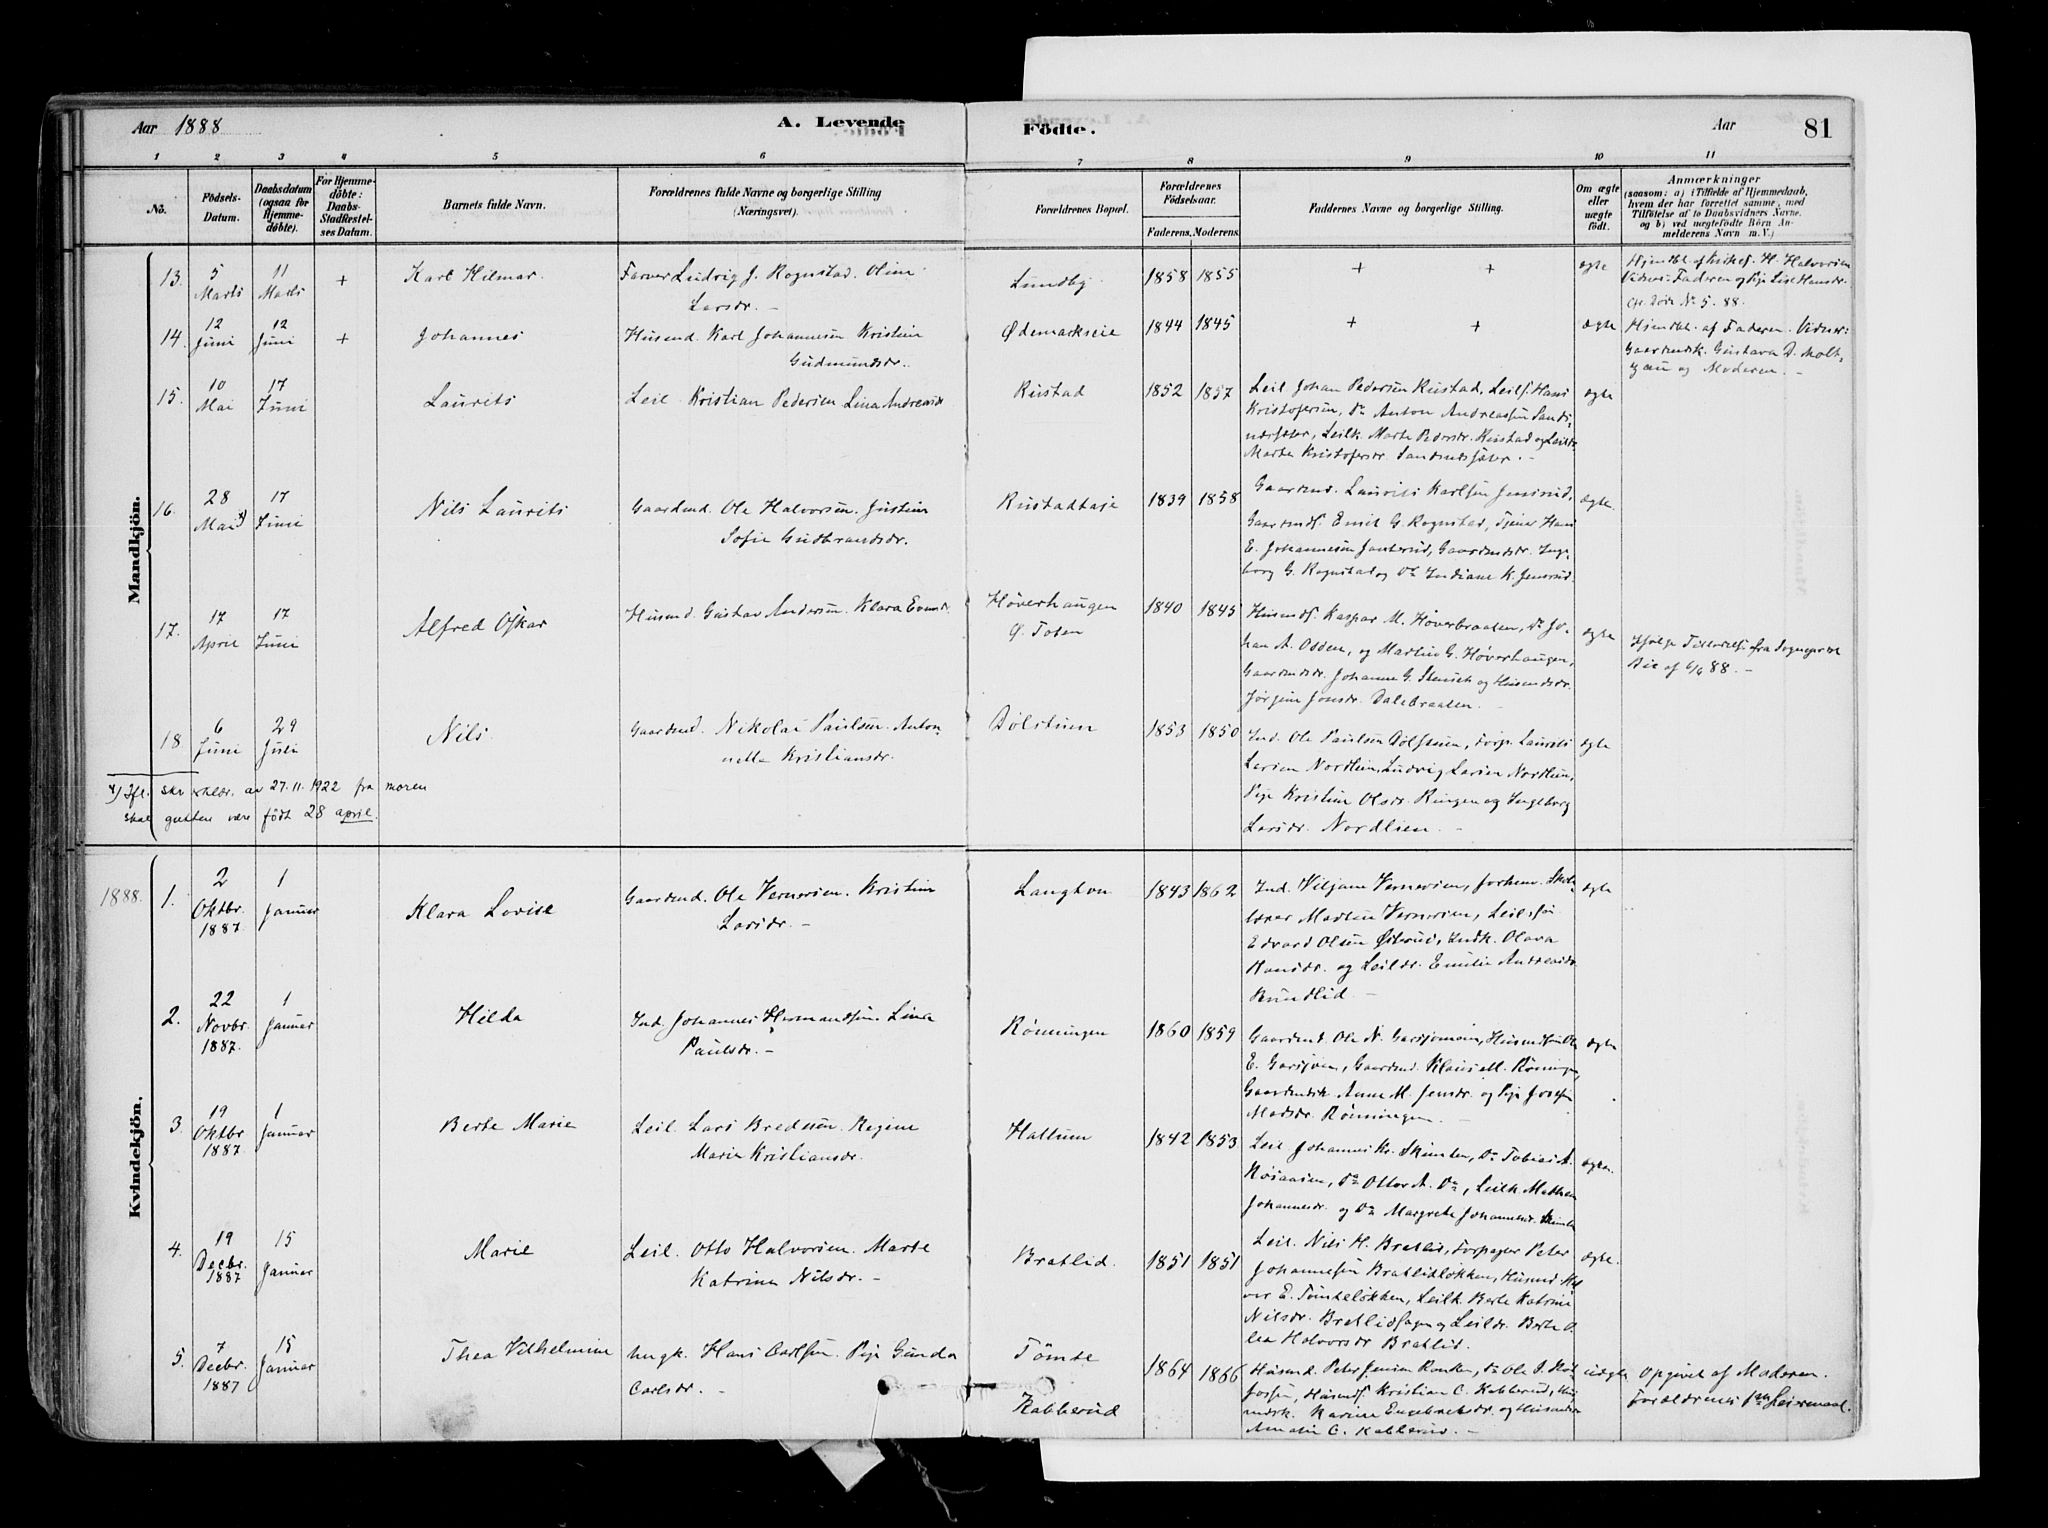 Aar 1888
A. Levende
Födte.
Aar 81
1 2 3 4 5 6 7 8 9 10 11
No.
Födsels-Datum.
Daabsdatum (ogsaa for Hjemmedöbte).
For Hjemmedöbte: Daabs-Stadfæstelses Datum.
Barnets fulde Navn.
Forældrenes fulde Navne og borgerlige Stilling (Næringsvei).
Forældrenes Bopæl.
Forældrenes Födselsaar.
Faderens. Moderens.
Faddernes Navne og borgerlige Stilling.
Om ægte eller uægte födt.
Anmærkninger
(saasom: a) i Tilfælde af Hjemmedaab, hvem der har forrettet samme, med Tilföielse af to Daabsvidners Navne, og b) ved uægtefödte Börn Anmelderens Navn m. V.)
Mandkjön.
13. 5 Marts 11 Marts + Karl Hilmar.
Farver Ludvig J. Rognstad. Oline
Larsdr. –
Lundby 1858 1855 + + ægte
Vidner: Faderen og Pige Lise Hansdr.
No 5. 88.
14. 12 Juni 12 Juni + Johannes
Husmd. Karl Johannesen Kristine
Gudmundsdr.
Ødemarkseie 1844 1845 + + ægte
Hjemdbt. af Faderen. Vidner:
Gaardmdsk. Gustava D.
og Moderen. –
15. 10 Mai 17 Juni Laurits
Leil. Kristian Pedersen Lina Andreasdr
Rustad 1852 1857
Leil Johan Pedersen Rustad, Leils. Hans
Kristofersen, Do Anton Andreassen
Leilk. Marte Pedersdr. Rustad og Leildr.
Marte Kristofersdr.
ægte
16. 28 Mai x) 17 Juni Nils Laurits
Gaardmd. Ole Halvorsen. Justine
Sofie Gudbrandsdr.
Rustadhage 1839 1858
Gaardmd. Laurits Karlsen Jensrud,
Gaardmds. Emil G. Rognstad, Tjener Hans
E. Johannesen Gaardmdsdr. Inge-
borg G. Rognstad og Do Indiane K. Jensrud.
ægte.
17. 17 April 17 Juni Alfred Oskar
Husmd. Gustav Andersen. Klara Evensdr.
Høverhaugen
Ø. Toten
1840 1845
Husmds. Kaspar M. Høverbraaten, Do Jo-
han A. Odden, og Martin G. Høverhaugen,
Gaardmdsdr. Johanne G. Stenseth og Husmdsdr.
Jørgine Jonsdr. Dalebraaten.
ægte
Ifølge Tilladelse fra Sognepræst
af 6/6 88. –
18 6 Juni 29 Juli Nils
Gaardmd. Nikolai Paulsen. Anton-
nette Kristiansdr.
Dølstuen 1853 1850
Ind. Ole Paulsen Dølstuen, Forp. Laurits
Larsen Nordlien, Ludvig Larsen Nordlien,
Pige Kristine Olsdr. Ringen og Ingeborg
Larsdr. Nordlien. –
ægte
x) Ifl. skr. erklær. av 27.11.1922 fra moren
skal gutten være født 28 april.
Kvindekjön.
1888.
1. 2 Oktbr. 1887. 1 Januar Klara Lovise
Gaardmd. Ole Vernersen. Kristine
Larsdr. –
Langton 1843 1862
Ind. Viljam Vernersen, forhenv. Skole-
lærer Madten Vernersen, Leilssøn
Edvard Olsen Østerud, Indk. Olava
Hansdr. og Leildr. Emilie Andreasdr.
Bundlid. –
ægte
2. 22 Novbr. 1887. 1 Januar Hilda
Ind. Johannes Hermandsen. Lina
Paulsdr. –
Rønningen 1860 1859
Gaardmd. Ole N. Garsjømoen, Husmdsøn Ole
E. Garsjøen, Gaardmd. Klaus M. Røningen,
Gaardmdsk Anne M. Jensdr. og Pige Josefine
Madsdr. Rønningen.
ægte
3. 19 Oktbr 1887. 1 Januar Berte Marie
Leil. Lars Bredesen. Regine
Marie Kristiansdr.
Hallum 1842 1853
Leil Johannes Kr. Skimten, Do Tobias A.
Røisaasen, Do Ottar A. Do, Leilk. Mathea
Johannesdr. og Do Margrete Johannesdr. Skimten
ægte.
4. 19 Decbr. 1887 15 Januar Marie
Leil. Otto Halvorsen. Marte
Katrine Nilsdr. –
Bratlid. 1851 1851
Leil. Nils H. Bratlid, Forpagter Peter
Johannesen Bratlidløkken, Husmd. Hal-
vor E. Tømteløkken, Leilk. Berte Katrine
Nilsdr. Bratlidhagen og Leildr. Berte O-
lea Halvorsdr Bratlid.
ægte.
5. 7 Decbr. 1887 15 Januar Thea Vilhelmine
Ungk. Hans Carlsen. Pige Gunda
Carlsdr. –
Tømte
Kabberud
1864 1866
Husmd. Peter Jensen Do Ole P.
Husmds. Kristian C. Kabberud, Hus-
mdsk. Karine Engebretsdr. og Husmdsdr
Amalie C. Kabberud. –
uægte
Opgivet af Moderen.
Forældrenes 1ste Leiermaal.